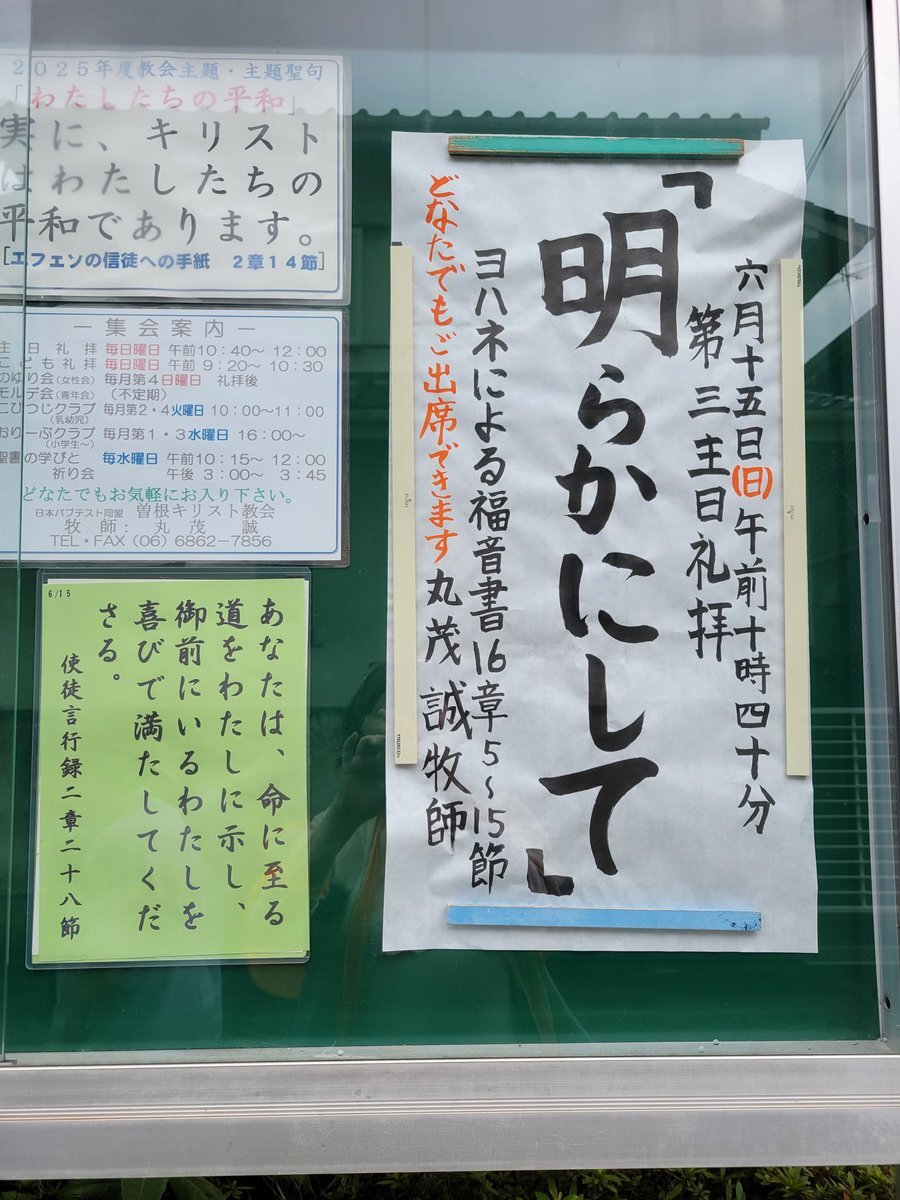 2025年度教会主題・主題聖句
「わたしたちの平和」
実に、キリスト
はわたしたちの
平和であります。
[エフェソの信徒への手紙 2章14節]
―集会案内―
主日礼拝 毎日曜日 午前10:40〜 12:00
こども礼拝 毎日曜日 午前 9:20〜 10:30
のゆり会(女性会) 毎月第4日曜日 礼拝後
モルデ会(青年会) (不定期)
こひつじクラブ 毎月第2・4火曜日 10:00〜11:00
(乳幼児)
おりーぶクラブ 毎月第1・3水曜日 16:00〜
(小学生〜)
聖書の学びと 毎水曜日 午前10:15〜 12:00
祈り会 午後 3:00〜 3:45
どなたでもお気軽にお入り下さい。
日本バプテスト同盟 曽根キリスト教会
牧師: 丸茂 誠
TEL・FAX(06)6862-7856
6/15
あなたは、命に至る
道をわたしに示し、
御前にいるわたしを
喜びで満たしてくだ
さる。
使徒言行録二章二十八節
六月十五日(日)午前十時四十分
第三主日礼拝
「明らかにして」
ヨハネによる福音書16章5〜15節
どなたでもご出席できます 丸茂誠牧師
PUSH
PUSH
TRUSCO